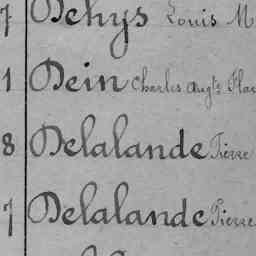 7 Dehys Louis M
1 Dein Charles Augte Flav
8 Delalande Pierre
7 Delalande Pierre